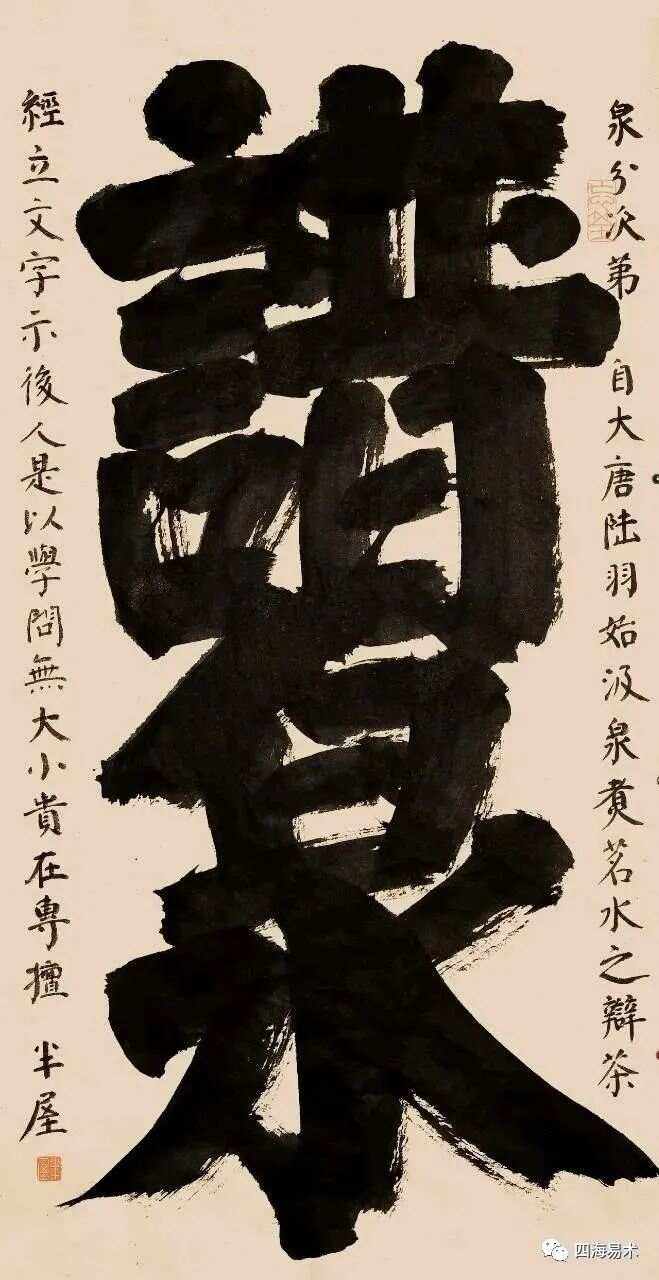 譜泉
泉分次第 自大唐陸羽始汲泉煮茗水之辯茶
經立文字示後人是以學問無大小貴在專擅 半屋
四海易术